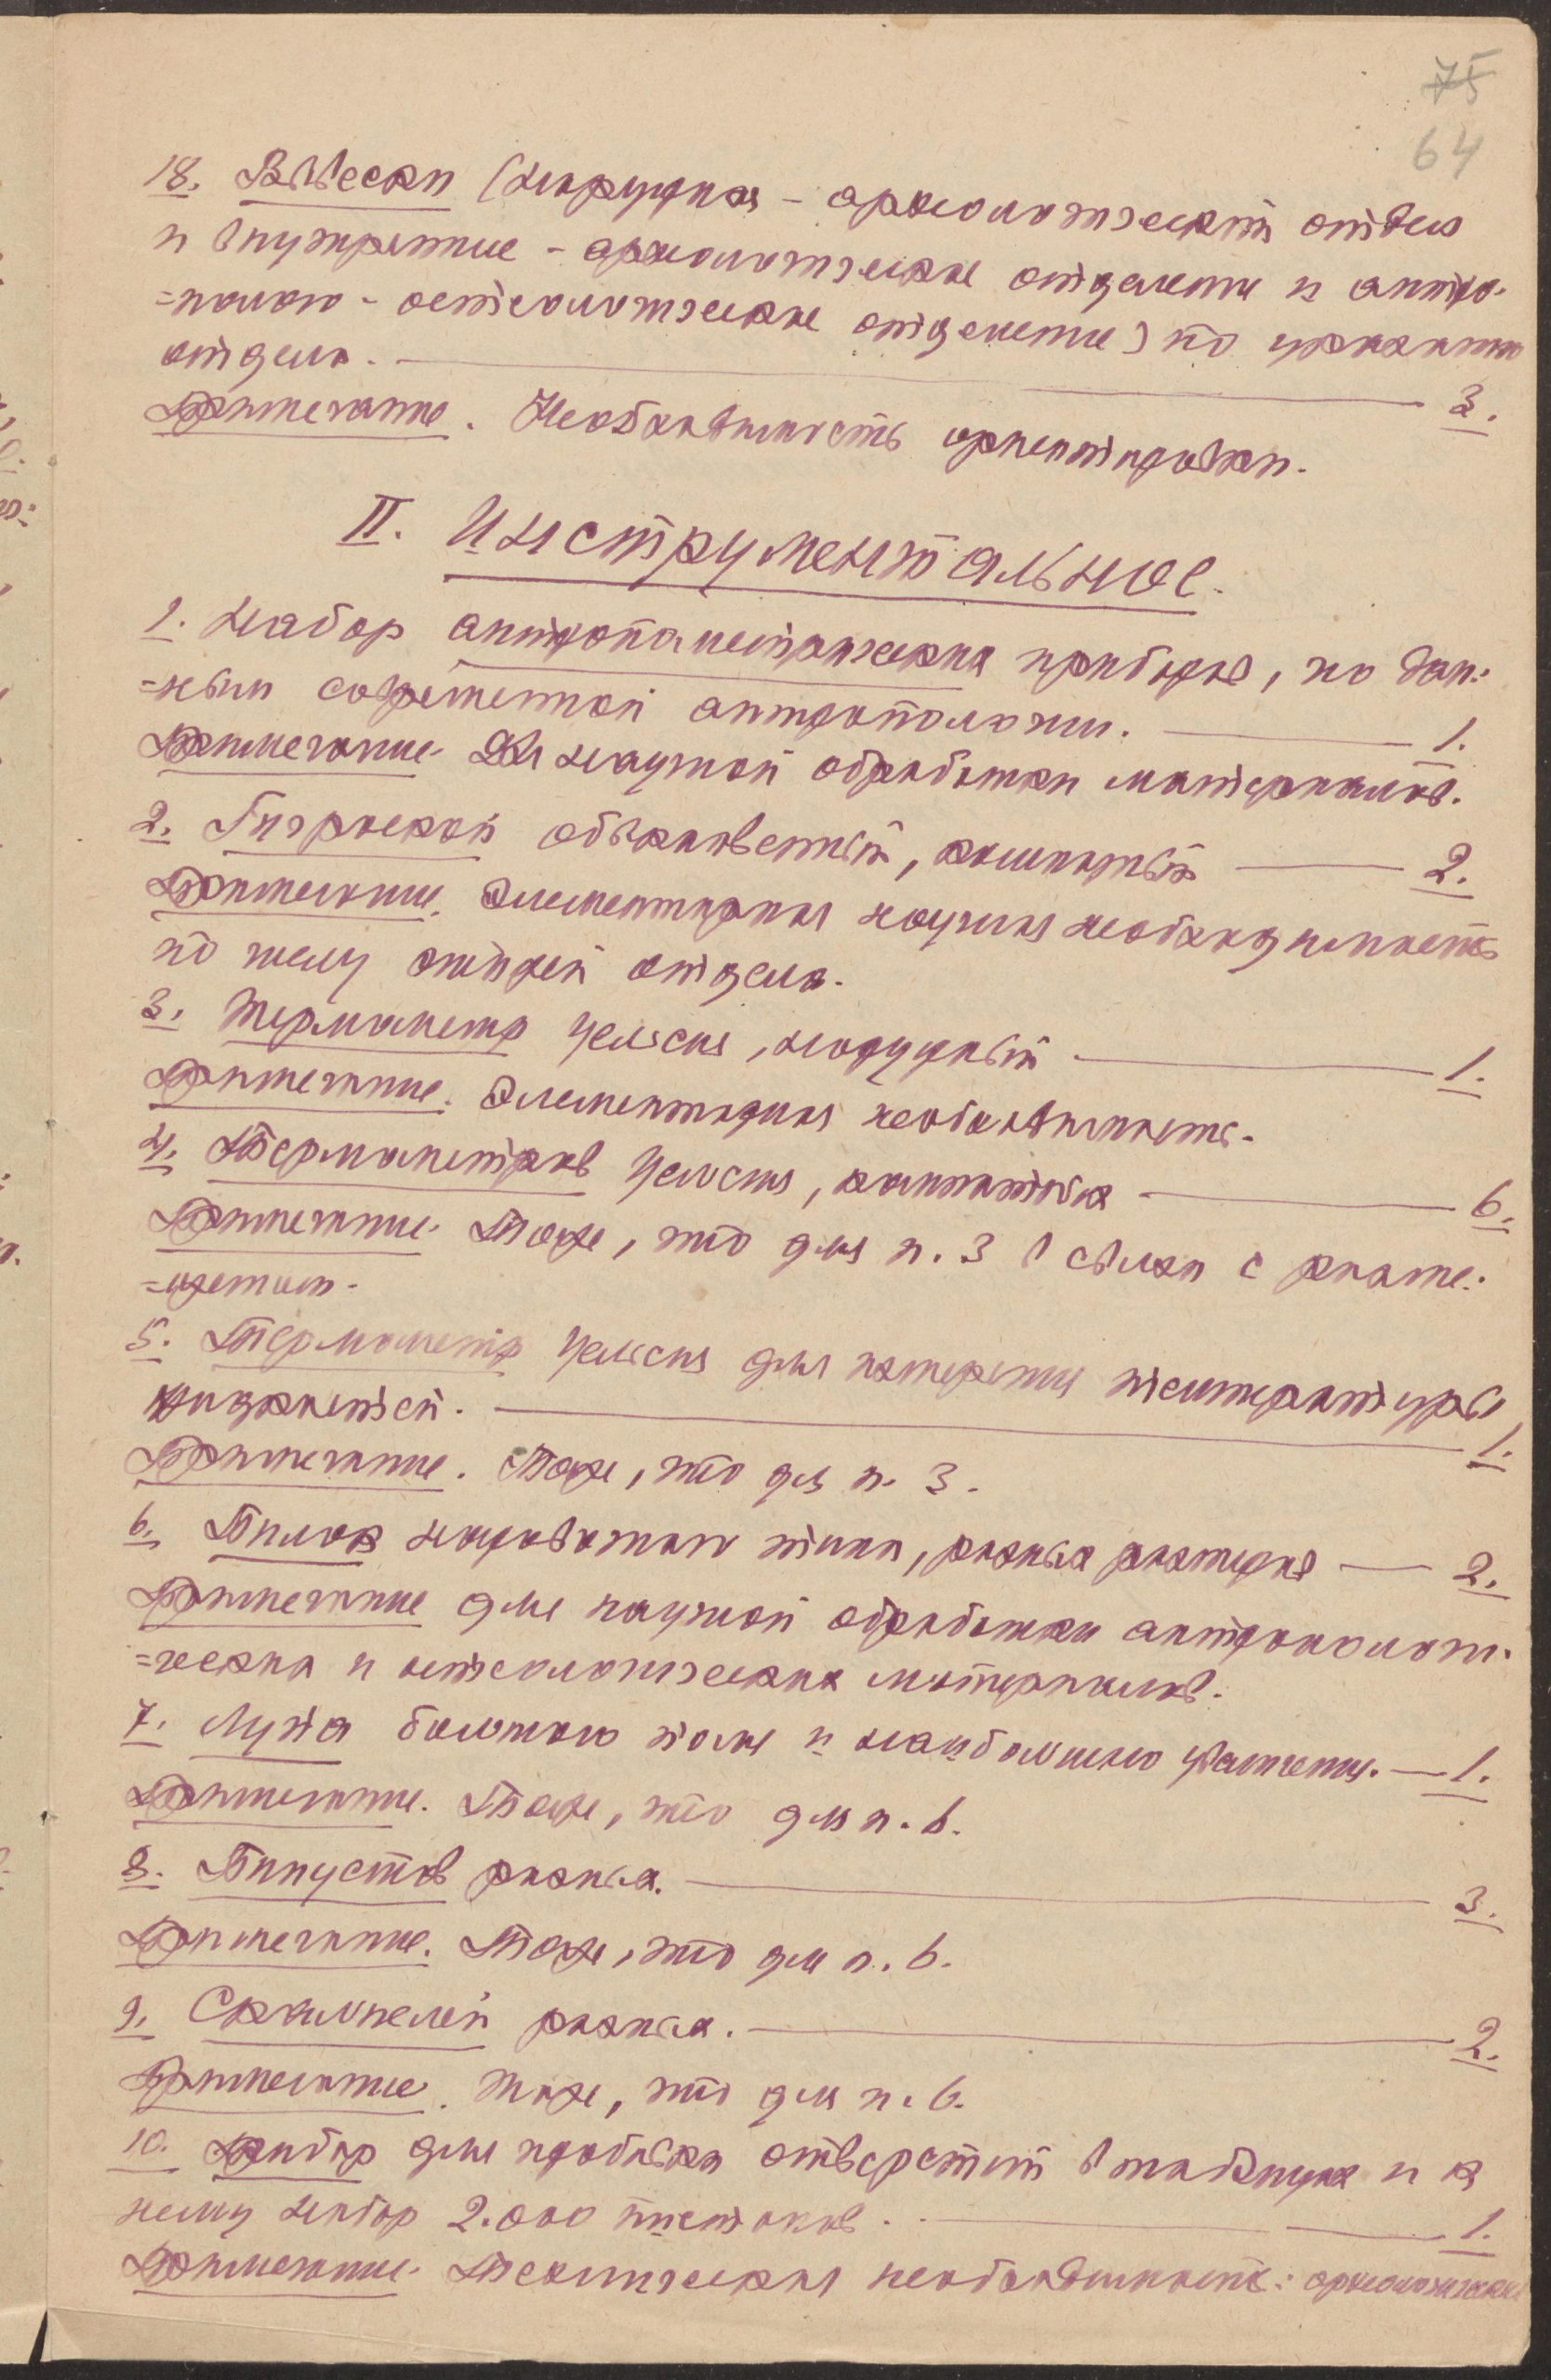 75
64
18. Вывески (наружная – археологический отдел
и внутренние – археологическое отделение и антро-
=полого-остеологическое отделение) по указанию
отдела. — 3.
Примечание. Необходимость ориентировки.
II. Инструментальное.
1. Набор антропометрических приборов, по дан-
=ным современной антропологии. — 1.
Примечание. Для научной обработки материалов.
2. Гигроскоп обыкновенный, комнатный — 2.
Примечание. Элементарная научная необходимость
по всему отдел отдела.
3. Термометр Цельсия, наружный — 1.
Примечание. Элементарная необходимость.
4. Термометров Цельсия, комнатных — 6.
Примечание. Тоже, что для п. 3 в связи с
5. Термометр Цельсия для измерения температуры
жидкостей. — 1.
Примечание. Тоже, что для п. 3.
6. Пилок типа, разных размеров — 2.
Примечание для научной обработки антропологи-
=ческих и остеологических материалов.
7. Лупа большого поля и наибольшего увеличения. — 1.
Примечание. Тоже, что для п. 6.
8. Пинцетов разных. — 3.
Примечание. Тоже, что для п. 6.
9. Скальпелей разных. — 2.
Примечание. Тоже, что для п. 6.
10. Прибор для пробивки отверстий в табличках и к
нему набор 2.000 пистонов. — 1.
Примечание. Техническая необходимость: археологическ